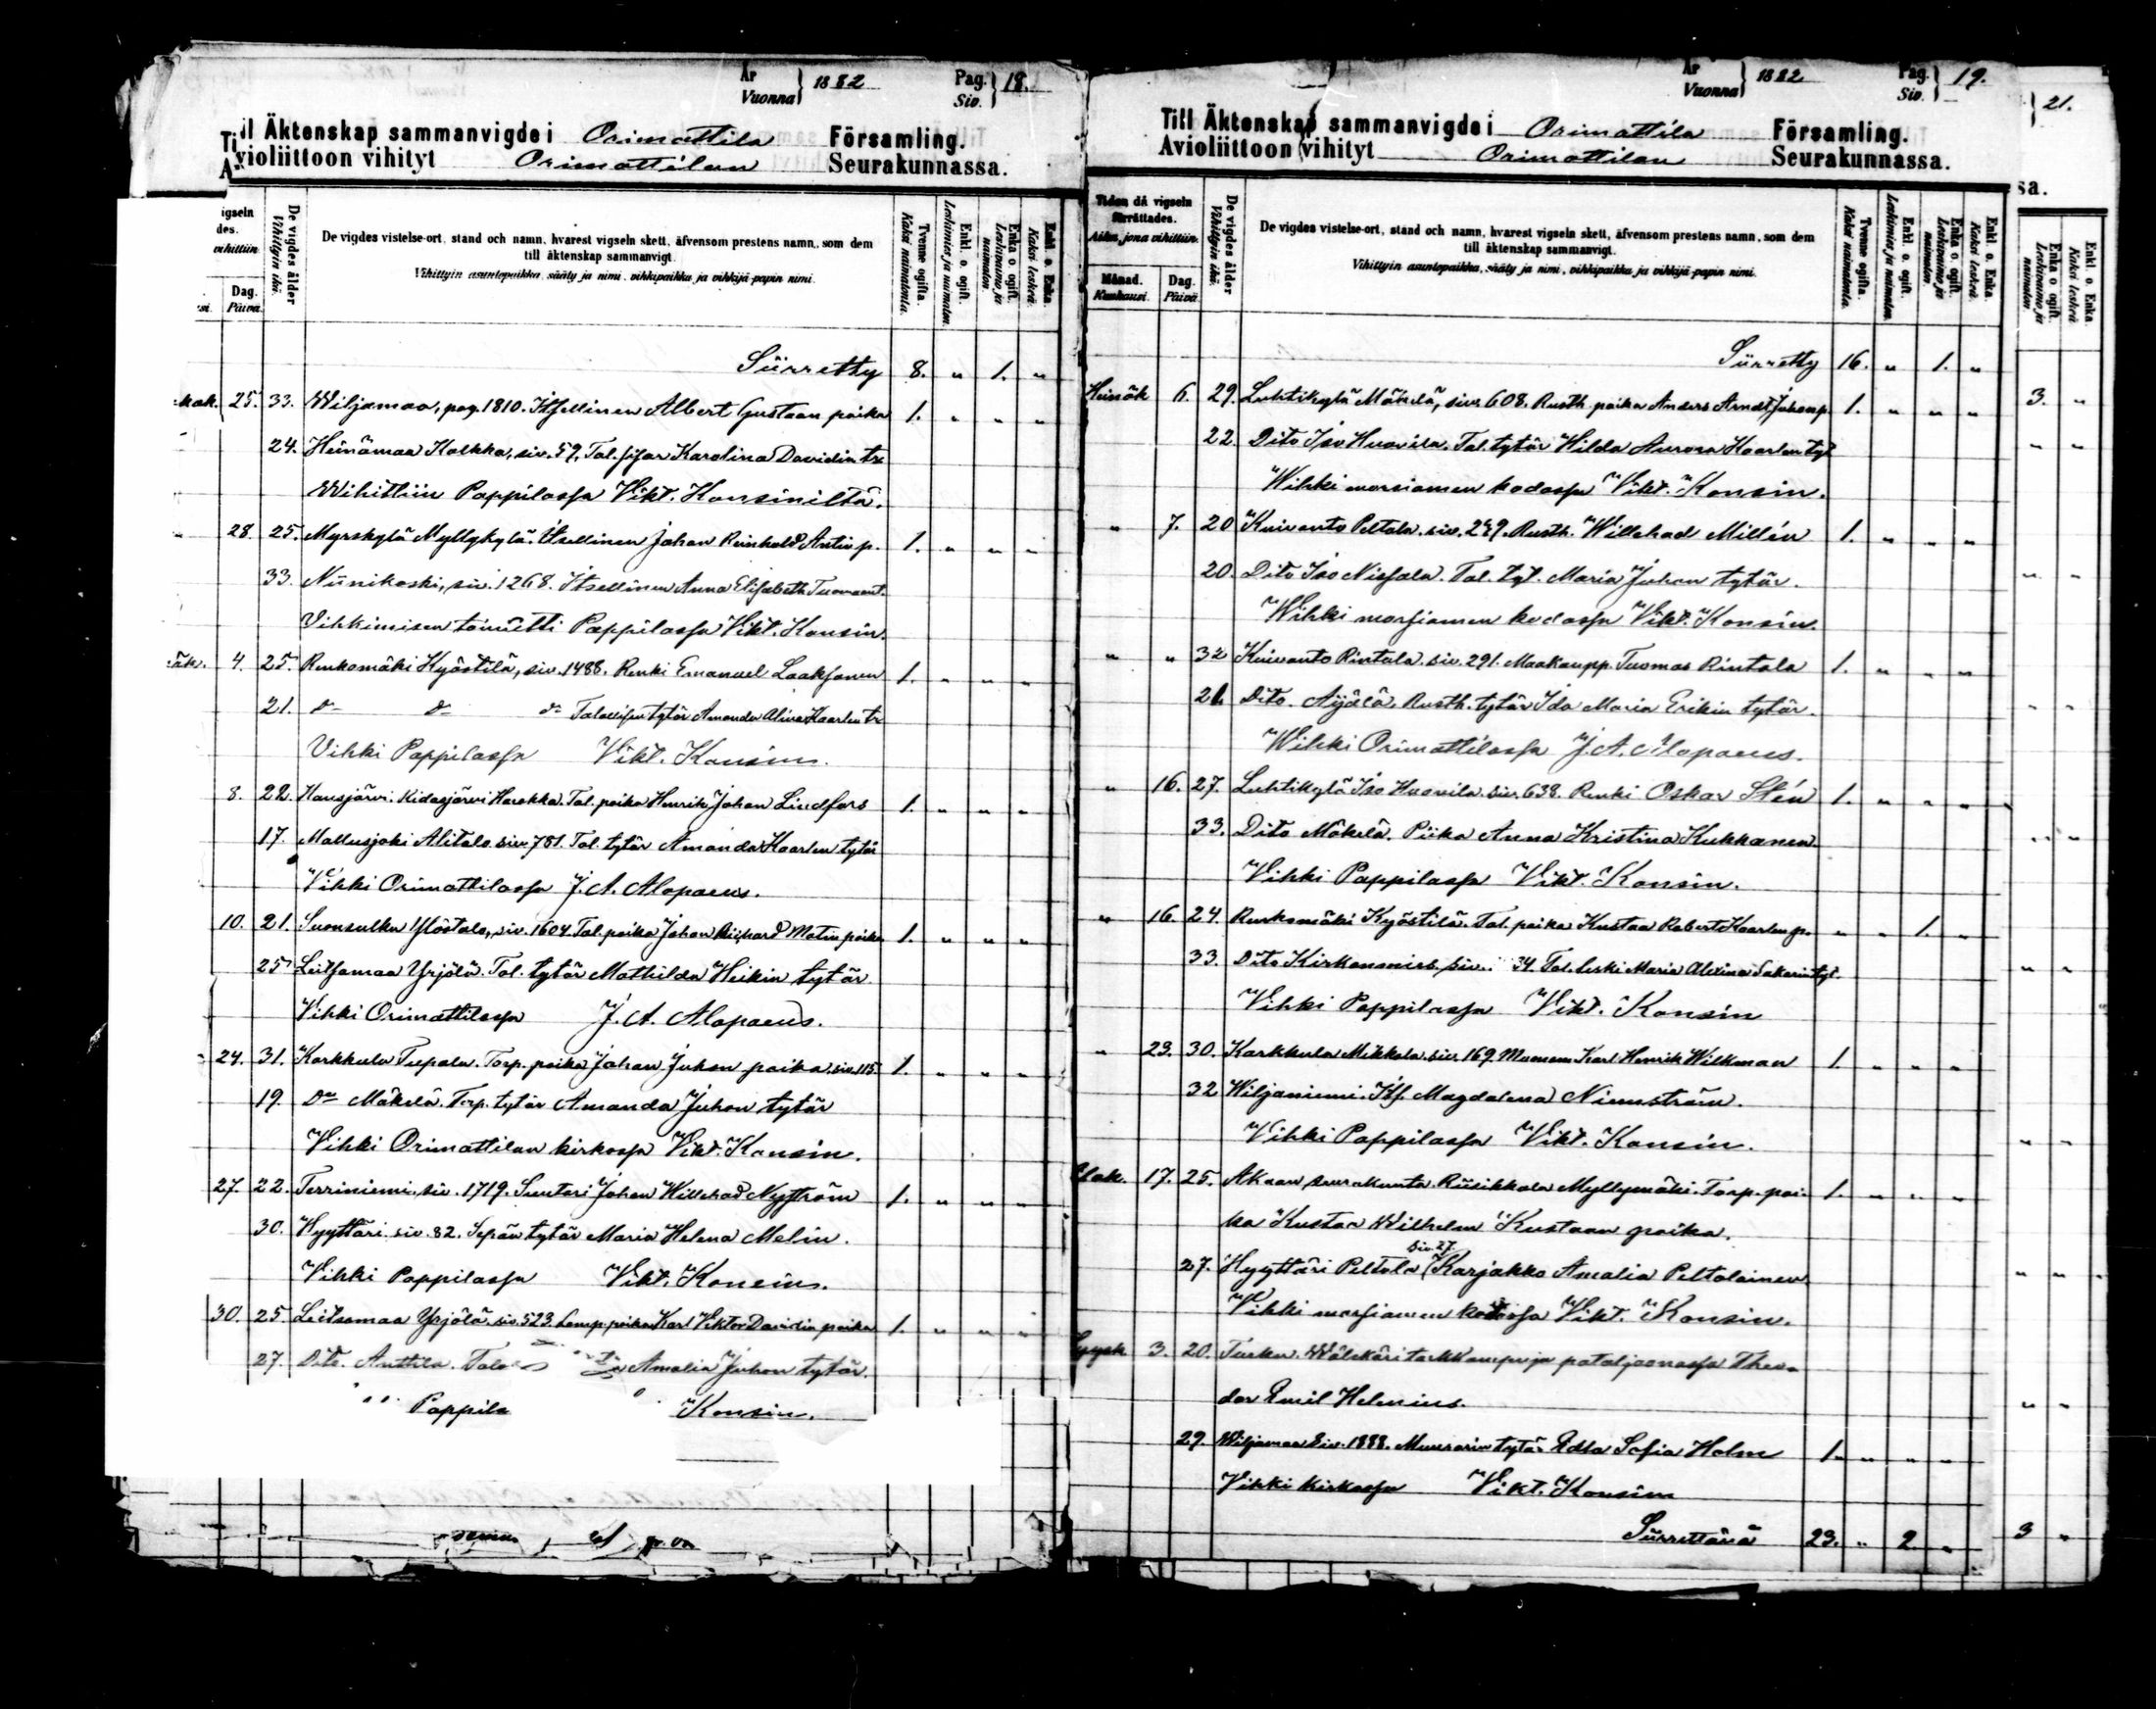 År Vuonna } 1882 Pag. Siv. } 18.
Til Äktenskap sammanvigde i Orimattila Församling.
Avioliittoon vihityt Orimattilan Seurakunnassa.
igseln des. vihittiin
Dag. Päivä.
De vigdes ålder Vihittyin ikä.
De vigdes vistelse-ort, stand och namn, hvarest vigseln skett, äfvensom prestens namn, som dem till äktenskap sammanvigt.
Vihittyin asuntopaikka, sääty ja nimi, vihkipaikka ja vihkijä-papin nimi.
Tvenne ogifta. Kaksi naimatonta.
Enkl. o. ogift. Leskimies ja naimaton.
Enka o. ogift. Leskivaimo ja naimaton.
Enkl. o. Enka. Kaksi leskeä.
Siirretty 8. " 1. "
kok. 25. 33. Wiljamaa, pag. 1810. Itsellinen Albert Gustaan poika 1. " " "
24. Heinämaa Kalkka, siv. 59, Tal. sisar Karolina Davidin tr
Wihittiin Pappilassa Vikt. Konsinilta.
" 28. 25. Myrskylä Myllykylä. Itsellinen Johan Reinhold Antin p. 1. " " "
33. Niinikoski, siv. 1268. Itsellinen Anna Elisabeth Tuomaant.
Vihkimisen toimitti Pappilassa Vikt. Konsin.
äk. 4. 25. Renkomäki Kyöstilä, siv. 1488. Renki Emanuel Laaksonen 1. " " "
21. d:o d:o d:o Talollisen tytär Amanda Alina Kaarlen tr
Vihki Pappilassa Vikt. Konsin.
8. 22. Hausjärvi. Kidasjärvi Harakka. Tal. poika Henrik Johan Lindfors 1. " " "
17. Mallusjoki Alitalo siv. 781. Tal. tytär Amanda Kaarlen tytär
Vihki Orimattilassa J. A. Alopaeus.
10. 21. Suonsulku Ylöstalo, siv. 1604. Tal. poika Johan Richard Matin poika 1. " " "
25 Leitsamaa Yrjölä. Tal. tytär Mathilda Heikin tytär
Vihki Orimattilassa J. A. Alopaeus.
24. 31. Karkkula Teepala. Torp. poika Johan Juhon poika. siv. 115. 1. " " "
19. D:o Mäkelä. Torp. tytär Amanda Juhon tytär
Vihki Orimattilan kirkossa Vikt. Konsin.
27. 22. Terriniemi. siv. 1719. Suutari Johan Willehad Nyström 1. " " "
30. Hyyttäri siv. 82. Sepän tytär Maria Helena Melin.
Vihki Pappilassa Vikt. Konsin.
30. 25 Leitsamaa Yrjölä. siv. 523. Lamp. poika Karl Viktor Davidin poika 1. " " "
27. Dito. Anttila. Amalia Juhon tytär.
Pappila Konsin.
År Vuonna } 1882 Pag. Siv. } 19.
Till Äktenskap sammanvigde i Orimattila Församling.
Avioliittoon vihityt Orimattilan Seurakunnassa.
Tiden då vigseln förrättades. Aika, jona vihittiin.
Månad. Kuukausi.
Dag. Päivä.
De vigdes ålder Vihittyin ikä.
De vigdes vistelse-ort, stand och namn, hvarest vigseln skett, äfvensom prestens namn, som dem till äktenskap sammanvigt.
Vihittyin asuntopaikka, sääty ja nimi, vihkipaikka ja vihkijä-papin nimi.
Tvenne ogifta. Kaksi naimatonta.
Enkl. o. ogift. Leskimies ja naimaton.
Enka o. ogift. Leskivaimo ja naimaton.
Enkl. o. Enka. Kaksi leskeä.
Siirretty 16. " 1. "
Heinäk 6. 29. Luhtikylä Mäkelä, siv. 608. Rusth. poika Anders Arndt Juhonp. 1. " " "
22. Dito Iso Huovila. Tal. tytär Hilda Aurora Kaarlen tyt
Wihki morsiamen kodossa Vikt. Konsin.
" 7. 20 Kuivanto Peltola. siv. 249. Rusth. Willehad Millén 1. " " "
20. Dito Iso Nissala. Tal. tyt. Maria Juhon tytär.
Wihki morsiamen kodossa Vikt. Konsin.
" " 32 Kuivanto Rintala. siv. 291. Maakaupp. Tuomas Rintala 1. " " "
21. Dito. Äijälä. Rusth. tytär Ida Maria Erikin tytär.
Wihki Orimattilassa J. A. Alopaeus.
" 16. 27. Luhtikylä Iso Huovila. siv. 638. Renki Oskar Stén 1. " " "
33. Dito Mäkelä. Piika Anna Kristina Kukkanen
Vihki Pappilassa Vikt. Konsin.
" 16. 24. Renkomäki Kyöstilä. Tal. poika Kustaa Robert Kaarlen p. " " 1. "
33. Dito Kirkonniss. siv. 34. Tal. leski Maria Alexina Sakerin tyt.
Vihki Pappilassa Vikt. Konsin
" 23. 30. Karkkula Mikkola. siv. 169. Karl Henrik Wilkman 1. " " "
32 Wiljaniemi. Its. Magdalena Niemström.
Vihki Pappilassa Vikt. Konsin.
Elok. 17. 25. Akaan seurakunta. Riisikkala Myllymäki. Torp. poi- 1. " " "
ka Kustaa Wilhelm Kustaan poika.
siv. 27.
27. Hyyttäri Peltola Karjakko Amalia Peltolainen
Vihki morsiamen kodossa Vikt. Konsin.
Syysk 3. 20. Turku. Wälskäri tarkkampuja pataljoonassa Theo-
dor Emil Helenius.
29. Wiljamaa siv. 1888. Muurarin tytär Edla Sofia Holm 1. " " "
Vihki kirkossa Vikt. Konsin
Siirrettävä 23. " 2. "
21.
sa.
Enka o. ogift. Leskivaimo ja naimaton.
Enkl. o. Enka. Kaksi leskeä.
3. "
3 "